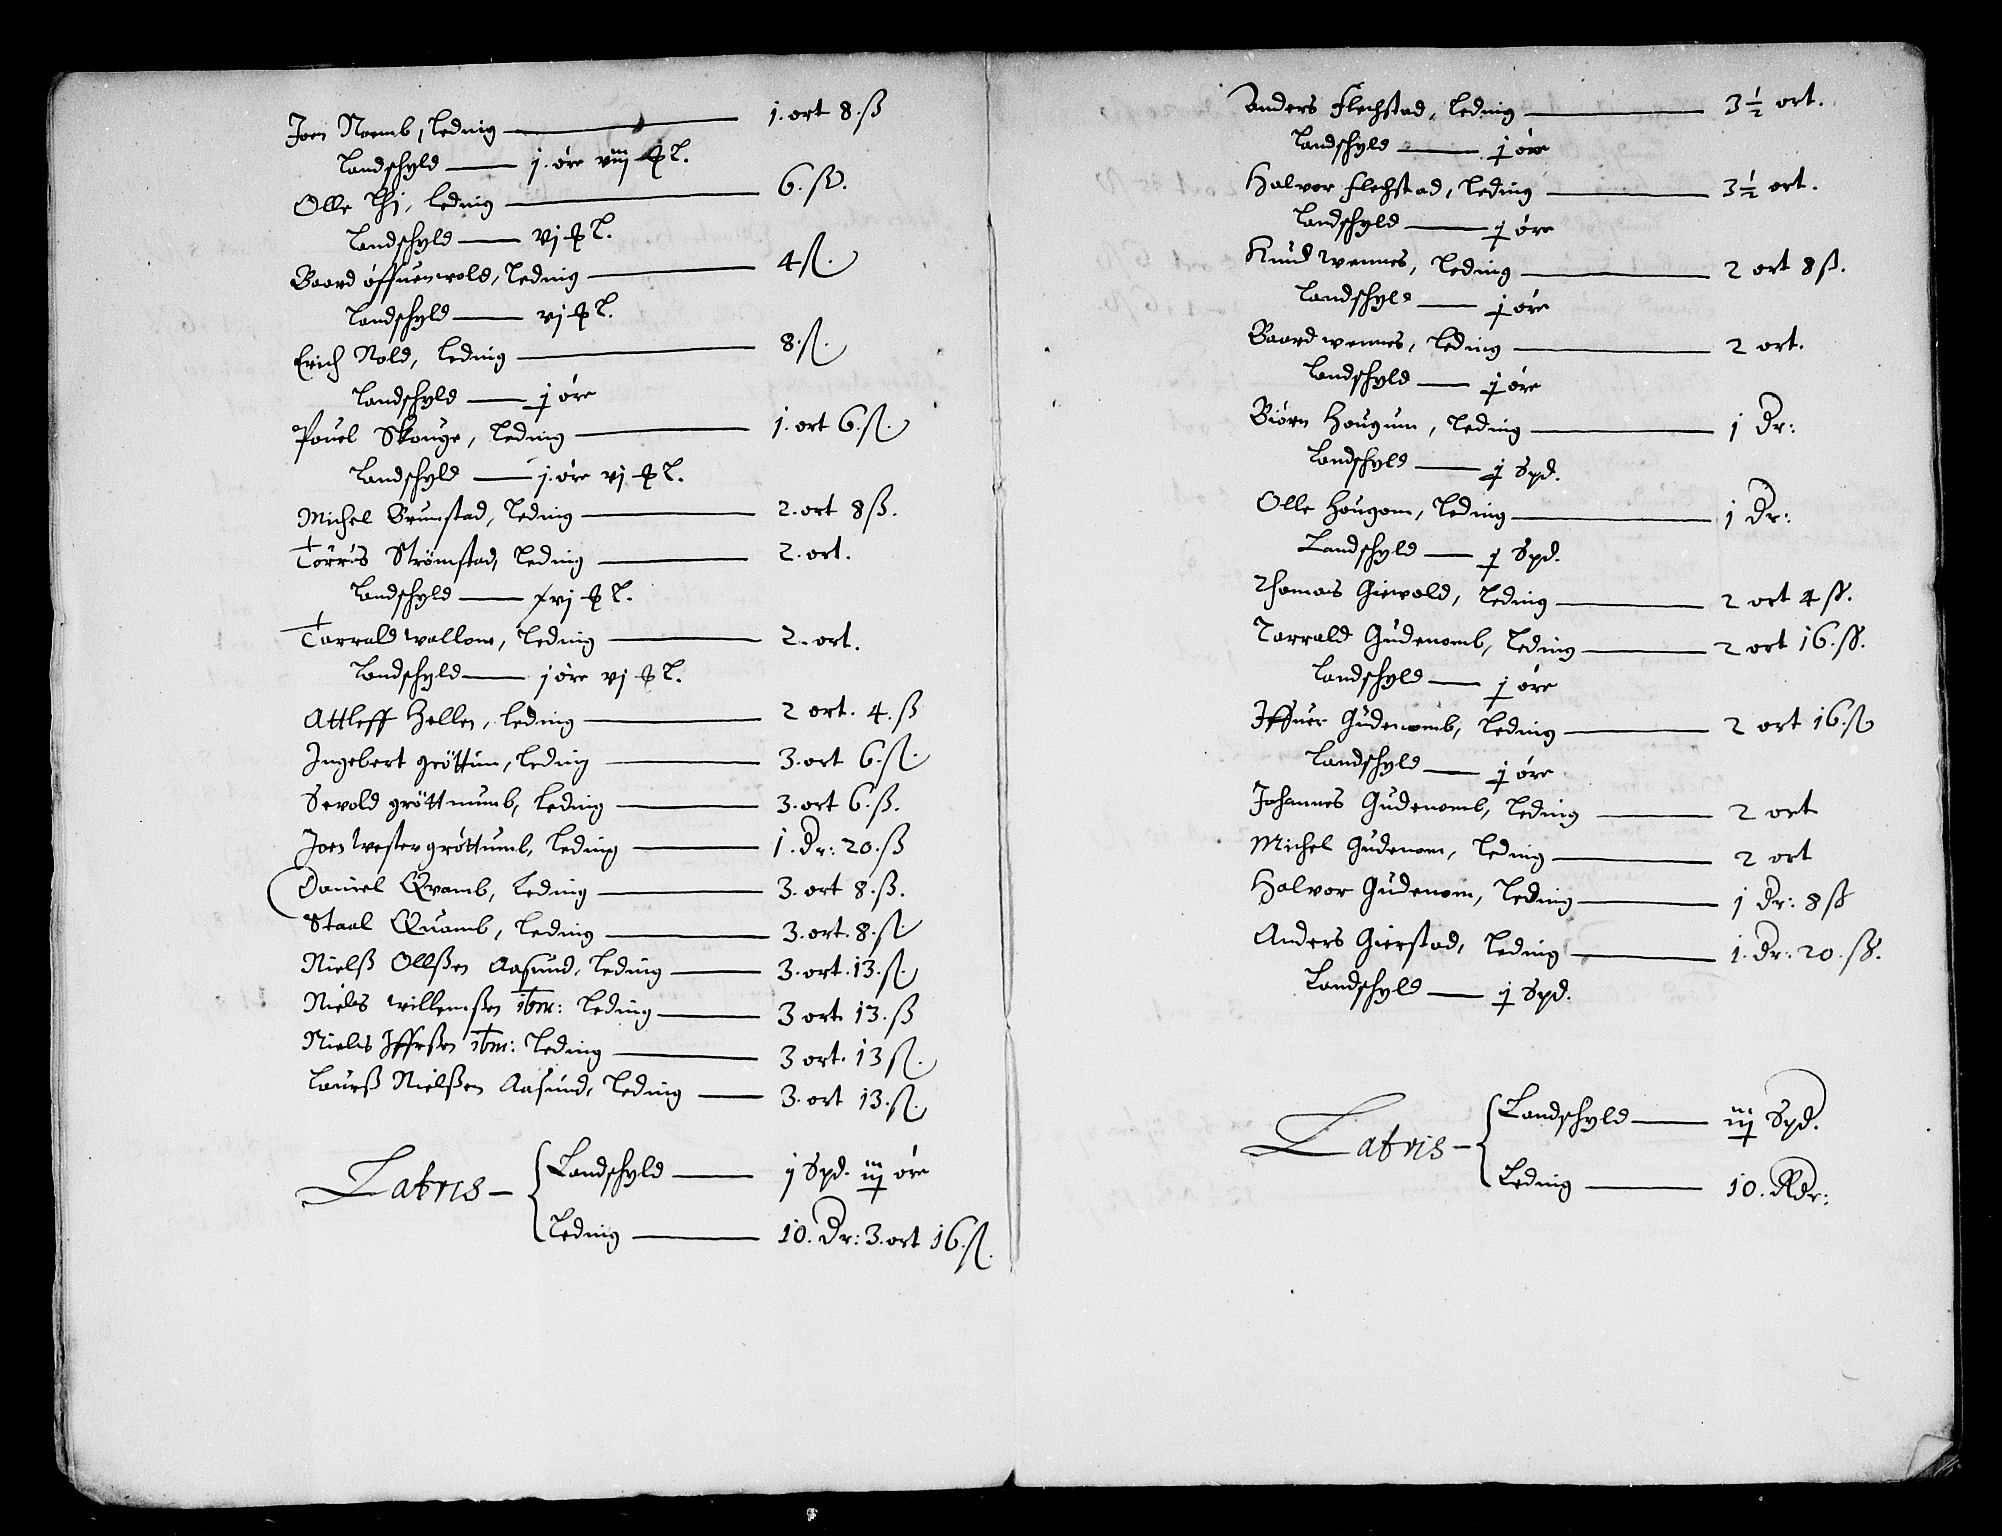 Joen Noemb, Leding — 1. ort 8. ß
Landschyld — j. øre viij
Olle Thj, Leding — 6. ß.
Landschyld — vj
Baard øffuenwold, Leding — 4 ß.
Landschyld — vj
Erich Nold, Leding — 8. ß.
Landschyld — j øre
Pouel Skouge, Leding — 1. ort 6. ß.
Landschyld — j. øre vj
Michel Brunstad, Leding — 2. ort 8 ß.
Torris Strømstad, Leding — 2. ort.
Landschyld — vj
Tarrald wallom, Leding — 2. ort.
Landschyld — j øre vj
Attleff Hellen, Leding — 2 ort. 4. ß
Ingebert grøttum, Leding — 3. ort 6. ß.
Sevold grøttnumb, Leding — 3. ort 6. ß.
Joen Vester grøttumb, Leding — 1. Dr: 20. ß
Daniel Qvamb, Leding — 3. ort 8. ß.
Staal Quamb, Leding — 3. ort. 8. ß.
Nielß Ollßen Aasund, Leding — 3. ort. 13. ß.
Niels willemßen ibm: Leding — 3 ort 13. ß
Niels Iffrßen ibm: Leding — 3 ort. 13 ß.
Laurß Nielßen Aasund, Leding — 3. ort 13. ß.
Latris — Landschyld — j Spd. iij øre
Leding — 10. Dr: 3. ort 16. ß.
Anders Flechstad, Leding — 3 1/2 ort.
Landschyld — j øre
Halvor Flechstad, Leding — 3 1/2 ort.
Landschyld — j øre
Knud Wennes, Leding — 2 ort 8 ß.
Landschyld — j øre
Baard wennes, Leding — 2 ort.
Landschyld — j øre
Biørn Hougum, Leding — 1 Dr:
Landschyld — j Spd.
Olle Hougom, Leding — 1 Dr:
Landschyld — j Spd.
Thomas Giewold, Leding — 2 ort 4 ß.
Tarrald Gudenomb, Leding — 2 ort 16. ß.
Landschyld — j øre
Iffuer Gudenomb, Leding — 2 ort 16. ß
Landschyld — j øre
Johannes Gudenomb, Leding — 2 ort
Michel Gudenom, Leding — 2 ort
Halvor Gudenom, Leding — 1 Dr: 8 ß
Anders Gierstad, Leding — 1. Dr: 20. ß.
Landschyld — j Spd.
Latris — Landschyld — iij Spd.
Leding — 10. Rdr: